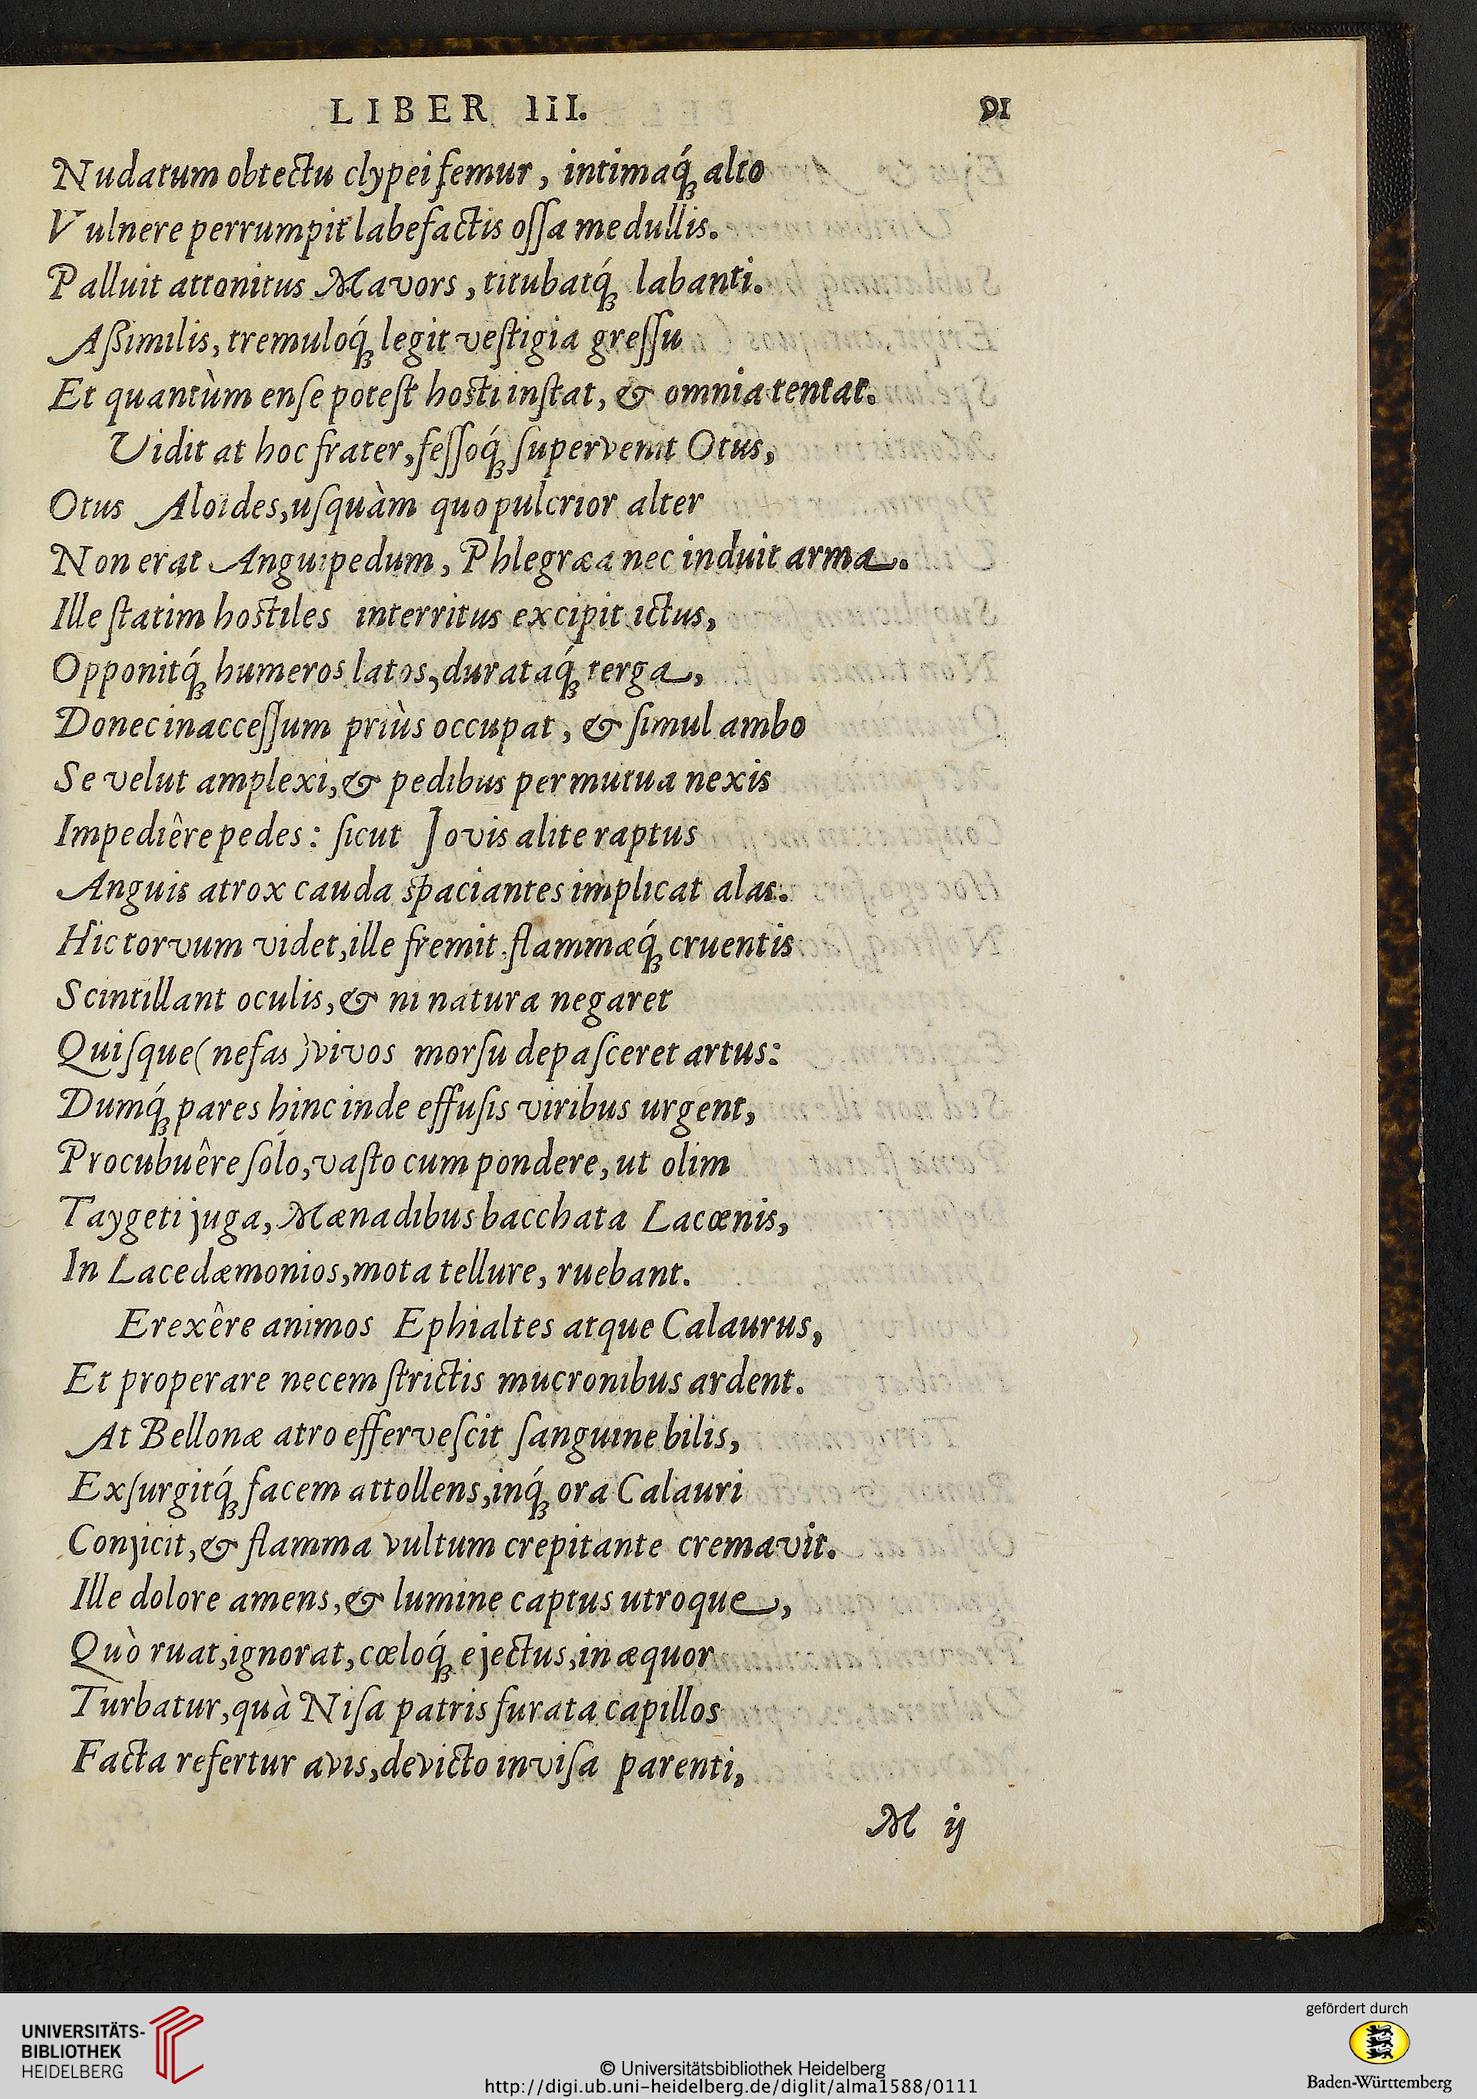 LIBER IiI. 91
Nudatum obtectu clypei femur, intimaq́ꝫ alto
Vulnere perrumpit labefactis oſſa medullis.
Palluit attonitus Mavors, titubatq́ꝫ labanti.
Aßimilis, tremuloq́ꝫ legit veſtigia greſſu
Et quantùm enſe poteſt hosti inſtat, & omnia tentat.
Vidit at hoc frater, feſſoq́ꝫ ſupervenit Otus,
Otus Aloïdes, uſquàm quo pulcrior alter
Non erat Anguipedum, Phlegræa nec induit arma.
Ille ſtatim hostiles interritus excipit ictus,
Opponitq́ꝫ humeros latos, durataq́ꝫ terga,
Donec inacceſſum priùs occupat, & ſimul ambo
Se velut amplexi, & pedibus per mutua nexis
Impediêre pedes: ſicut Jovis alite raptus
Anguis atrox cauda spaciantes implicat alas.
Hic torvum videt, ille fremit, flammæq́ꝫ cruentis
Scintillant oculis, & ni natura negaret
Quiſque (nefas) vivos morſu depaſceret artus:
Dumq́ꝫ pares hinc inde effuſis viribus urgent,
Procubuêre ſolo, vaſto cum pondere, ut olim
Taygeti juga, Mænadibus bacchata Lacœnis,
In Lacedæmonios, mota tellure, ruebant.
Erexêre animos Ephialtes atque Calaurus,
Et properare necem ſtrictis mucronibus ardent.
At Bellonæ atro efferveſcit ſanguine bilis,
Exſurgitq́ꝫ facem attollens, inq́ꝫ ora Calauri
Conjicit, & flamma vultum crepitante cremavit.
Ille dolore amens, & lumine captus utroque,
Quò ruat, ignorat, cœloq́ꝫ ejectus, in æquor
Turbatur, quà Niſa patris furata capillos
Facta refertur avis, devicto inviſa parenti,
M ij
UNIVERSITÄTS-
BIBLIOTHEK
HEIDELBERG
© Universitätsbibliothek Heidelberg
http://digi.ub.uni-heidelberg.de/diglit/alma1588/0111
gefördert durch
Baden-Württemberg